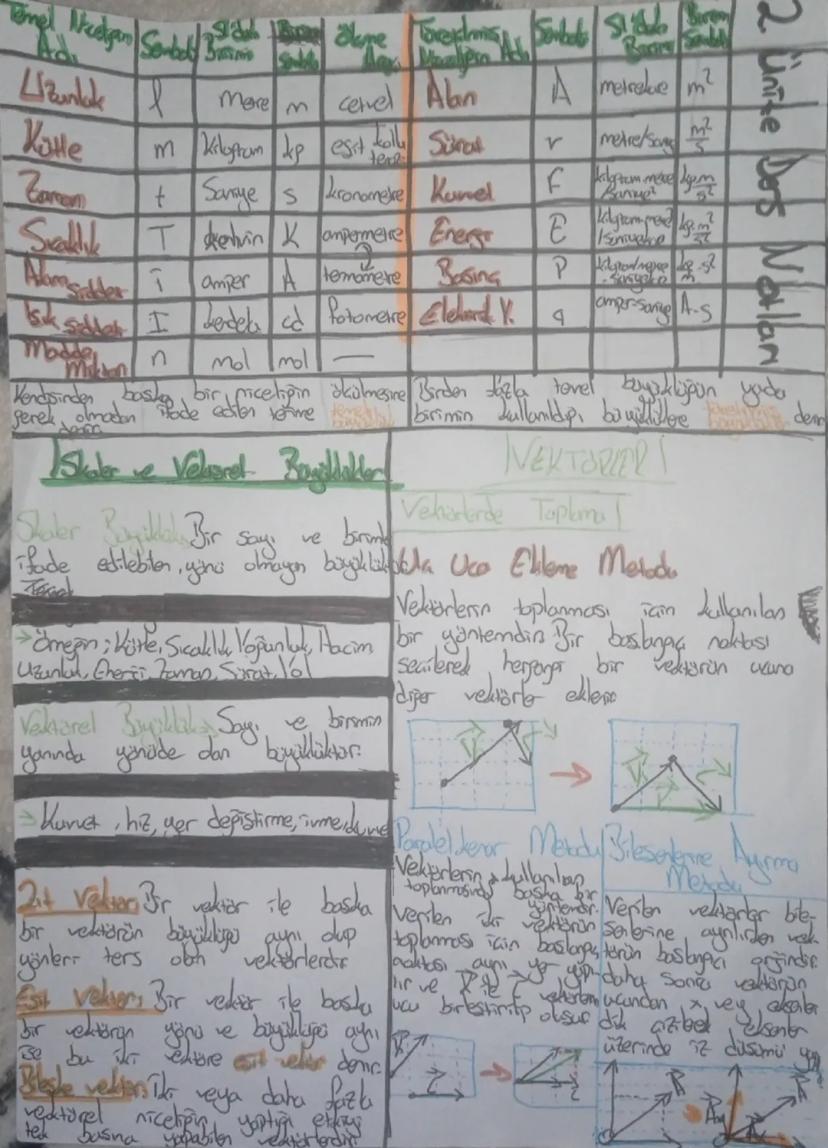 2. Ünite Ders Notları
Temel Niceliğin Adı Sembol SI'daki Birimi Birim Sembolü Ölçme Aracı Türetilmiş Niceliğin Adı Sembol SI'daki Birimi Birim Sembolü
Uzunluk l metre m cetvel Alan A metrekare m²
Kütle m kilogram kg eşit kollu terazi Sürat v metre/saniye m²/s
Zaman t Saniye s kronometre Kuvvet F kilogram.metre/saniye² kg.m/s²
Sıcaklık T kelvin K ampermetre Energi E kg.m²/s²
Akım Şiddeti i amper A termometre Basınç P
Işık şiddeti I kandela cd fotometre Elektrik Y. q amper-saniye A.s
Madde Miktarı n mol mol —
Kendisinden başka bir niceliğin ölçülmesine
gerek olmadan ifade edilen terime temel büyüklük denir
Birden fazla temel büyüklüğün yada
birimin kullanıldığı büyüklüklere türetilmiş büyüklük denir
Skaler ve Vektörel Büyüklükler
Skaler Büyüklük: Bir sayı ve birimle
ifade edilebilen, yönü olmayan büyüklük
→ Örneğin; Kütle, Sıcaklık, Yoğunluk, Hacim
Uzunluk, Enerji, Zaman, Sürat, Yol
Vektörel Büyüklük: Sayı ve birimin
yanında yönüde olan büyüklüktür.
→ Kuvvet, hız, yer değiştirme, ivme, kuvvet
Zıt Vektör: Bir vektör ile başka
bir vektörün büyüklüğü aynı olup
yönleri ters olan vektörlerdir
Eşit Vektör: Bir vektör ile başka
bir vektörün yönü ve büyüklüğü aynı
ise bu iki vektöre eşit vektör denir.
Bileşke vektör: iki veya daha fazla
vektörel niceliğin yaptığı etkiyi
tek başına yapabilen vektörlerdir
VEKTÖRLER!
Vektörlerde Toplama!
Uca Ekleme Metodu
Vektörlerin toplanması için kullanılan
bir yöntemdir. Bir başlangıç noktası
seçilerek herhangi bir vektörün ucuna
diğer vektörler eklenir
Paralelkenar Metodu
Vektörlerin kullanılan
toplanmasında başka bir
yöntemdir.
Verilen iki vektörün
toplanması için başlangıç
noktası aynı yer
ucu birleştirilip
Bileşenlerine Ayırma
Metodu
Verilen vektörler bile-
şenlerine ayrılırken vek-
törün başlangıcı orjindir.
daha sonra vektörün
ucundan x ve y eksenler
dik çizilerek eksenler
üzerinde iz düşümü